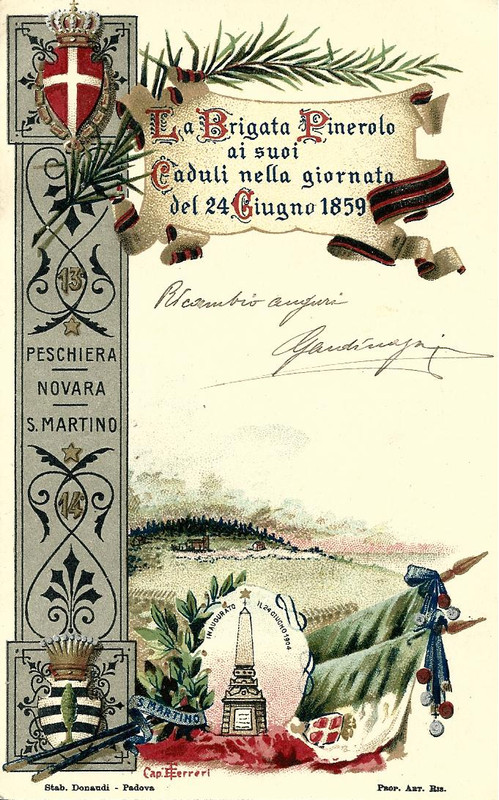 La Brigata Pinerolo
ai suoi
Caduli nella giornata
del 24 Giugno 1859
13º
PESCHIERA
NOVARA
S. MARTINO
14º
Ricambio auguri
INAUGURATO IL 24 GIUGNO 1904
S. MARTINO
Cap. E. Ferreri
Stab. Donaudi - Padova
Prop. Art. Ris.